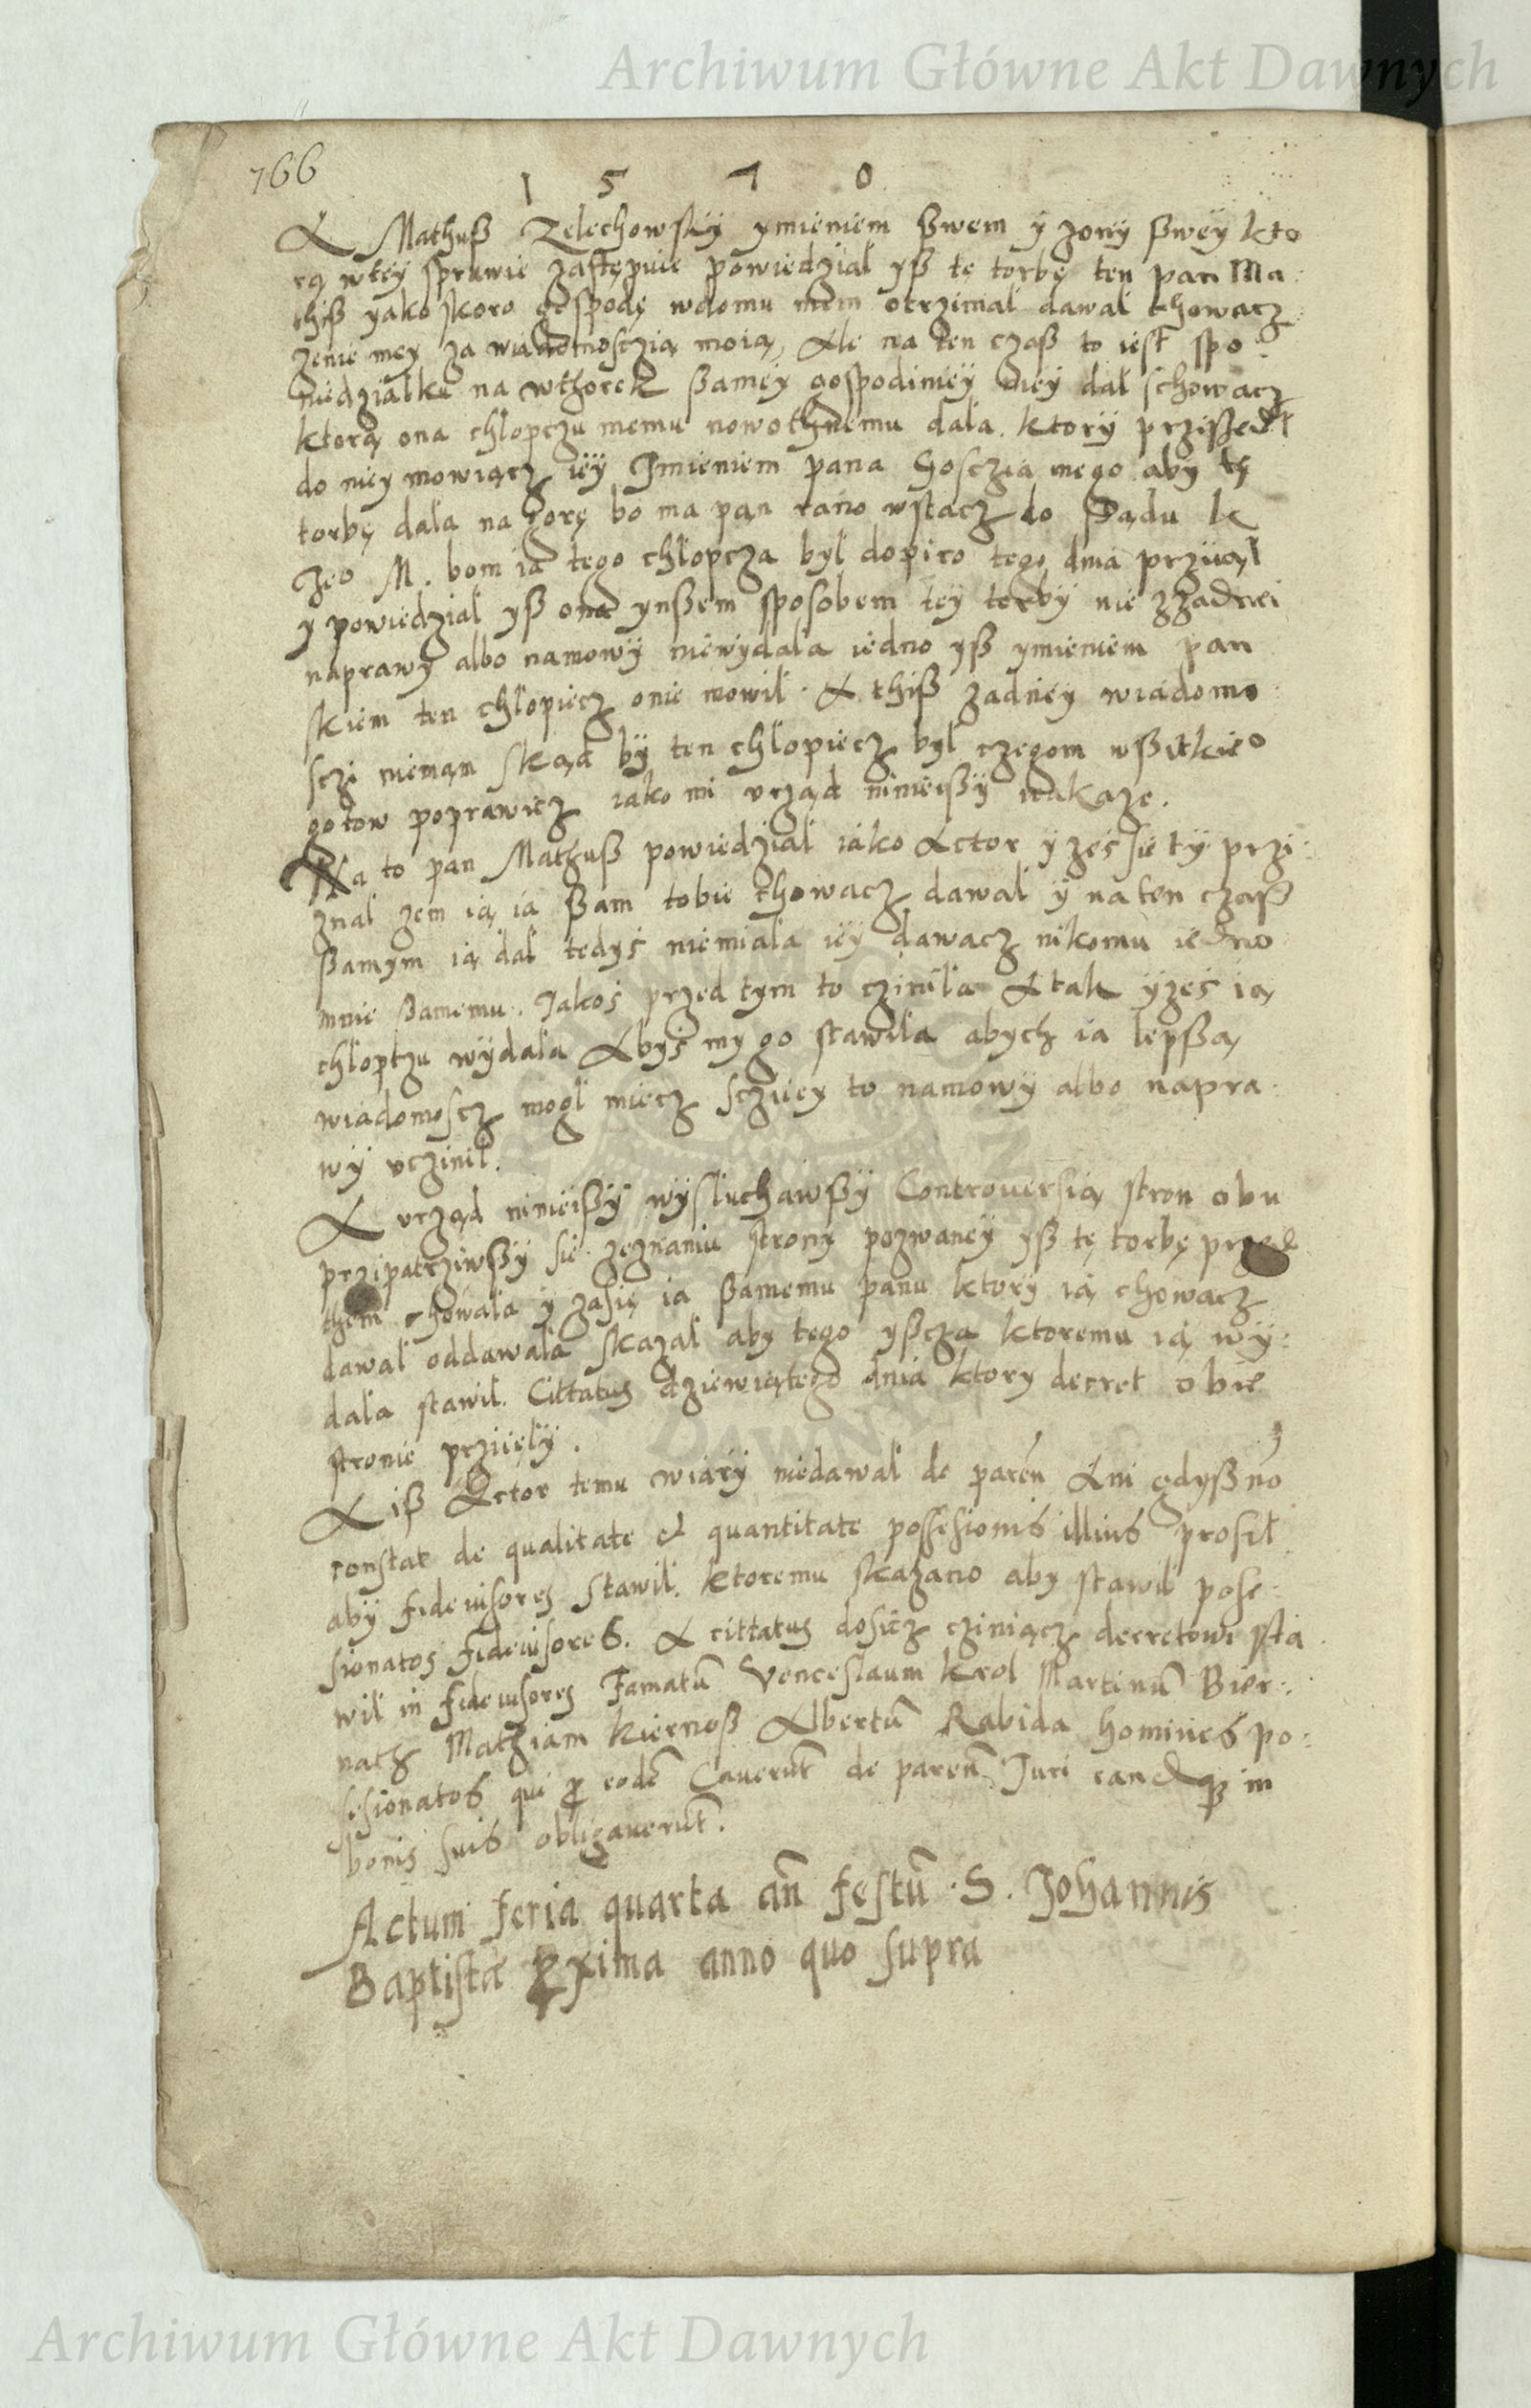 Archiwum Główne Akt Dawnych
766
1 5 7 0
A Mathuß Zelechowskÿ ymieniem ßwem ÿ zonÿ ßweÿ kto
rą wteÿ sprawie zastępuie powiedzial yß tę torbę ten pan Ma:
thiß yako skoro gospodę wdomu mem otrzimal dawal chowacz
zenie meÿ za wiadomosczią moią, Ale na ten czaß to iest spo
niedzialku na wthorek ßameÿ gospodinieÿ meÿ dal schowacz
ktorą ona chlopczu memu nowothnemu dala. ktorÿ przißedl
do nieÿ mowiącz ieÿ Imieniem pana Gosczia mego abÿ tę
torbę dala na gorę bo ma pan rano wstacz do Sądu k
Jeo M. bom ia tego chlopcza byl dopiro tego dnia prziiąl
y powiedzial yß ona ynßem sposobem teÿ torbÿ nie zzadnei
naprawÿ albo namowÿ niewÿdala iedno yß ymieniem pan
skiem ten chlopiecz onię mowil. A thiß zadneÿ wiadomo
sczi niemąm skąd bÿ ten chlopiecz bÿl czegom wßitkieo
gotow poprawicz iako mi vrząd ninieißÿ wskaze.
Na to pan Mathuß powiedzial iako Actor ÿ zes sie tÿ przi:
znal zem ią ia ßam tobie chowacz dawal ÿ na ten czaß
ßamÿm ią dal tedys niemiala ieÿ dawacz nikomu iedno
mnie ßamemu. Jakos przed tÿm to czinila A tak ÿzes ią
chlopczu wÿdala Abÿs mÿ go stawila abych ia lepßą
wiadomoscz mogl miecz sczÿieÿ to namowÿ albo napra
wÿ vczinil.
A vrząd ninieißÿ wÿsluchawßÿ Controuersią stron obu
przipatrziwßÿ sie zeznaniu stronÿ pozwaneÿ yß tę torbę przed
them chowala ÿ zasię ią ßamemu panu ktorÿ ią chowacz
dawal oddawala skazal abÿ tego yßcza ktoremu ią wÿ:
dala stawil. Cittatus dziewiątego dnia ktorÿ decret obie
stronie prziięlÿ.
A iß Actor temu wiarÿ niedawal de paren Ani gdÿß no
constat de qualitate et quantitate possesionis illius prosil
abÿ fideiusores stawil. ktoremu skazano abÿ stawil pose:
sionatos fideiusores. A cittatus dosicz cziniącz decretowi sta
wil in fideiusores Famatū Venceslaum Krol Martinū Bier:
nath Mathiam Kiernoß Albertū Rabida homines po:
sesionatos qui ꝓ eodē Cauerūt de paren Juri eandēqꝫ in
bonis suis obligauerūt.
Actum feria quarta añ festū S. Johannis
Baptistæ ꝓxima anno quo supra
Archiwum Główne Akt Dawnych